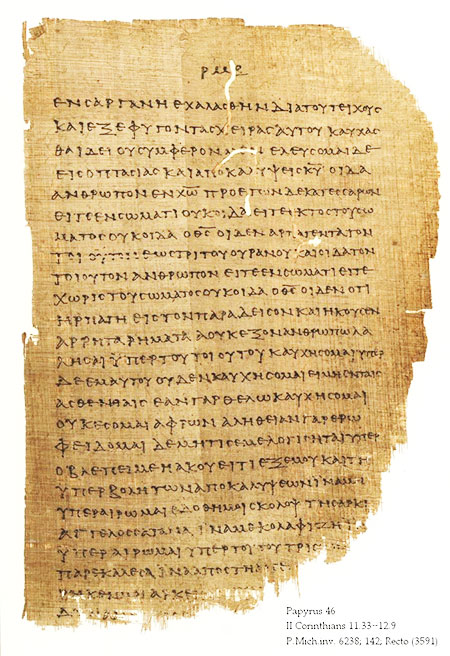 ΕΝϹΑΡΓΑΝΗΕΧΑΛΑϹΘΗΝΔΙΑΤΟΥΤΕΙΧΟΥϹ
ΚΑΙΕΞΕΦΥΓΟΝΤΑϹΧΕΙΡΑϹΑΥΤΟΥΚΑΥΧΑϹ
ΘΑΙΔΕΙΟΥϹΥΜΦΕΡΟΝΜΕΝΕΛΕΥϹΟΜΑΙΔΕ
ΕΙϹΟΠΤΑϹΙΑϹΚΑΙΑΠΟΚΑΛΥΨΕΙϹΚ̅Υ̅ΟΙΔΑ
ΑΝΘΡΩΠΟΝΕΝΧ̅Ω̅ΠΡΟΕΤΩΝΔΕΚΑΤΕϹϹΑΡΩΝ
ΕΙΤΕΕΝϹΩΜΑΤΙΟΥΚΟΙΔΑΕΙΤΕΕΚΤΟϹΤΟΥϹΩ
ΜΑΤΟϹΟΥΚΟΙΔΑΟΘ̅Ϲ̅ΟΙΔΕΝΑΡΠΑΓΕΝΤΑΤΟΝ
ΤΟΙΟΥΤΟΝΕΩϹΤΡΙΤΟΥΟΥΡΑΝΟΥΚΑΙΟΙΔΑΤΟΝ
ΤΟΙΟΥΤΟΝΑΝΘΡΩΠΟΝΕΙΤΕΕΝϹΩΜΑΤΙΕΙΤΕ
ΧΩΡΙϹΤΟΥϹΩΜΑΤΟϹΟΥΚΟΙΔΑΟΘ̅Ϲ̅ΟΙΔΕΝΟΤΙ
ΗΡΠΑΓΗΕΙϹΤΟΝΠΑΡΑΔΕΙϹΟΝΚΑΙΗΚΟΥϹΕΝ
ΑΡΡΗΤΑΡΗΜΑΤΑΑΟΥΚΕΞΟΝΑΝΘΡΩΠΩΛΑ
ΛΗϹΑΙΫΠΕΡΤΟΥΤΟΙΟΥΤΟΥΚΑΥΧΗϹΟΜΑΙΥΠΕΡ
ΔΕΕΜΑΥΤΟΥΟΥΔΕΝΚΑΥΧΗϹΟΜΑΙΕΙΜΗΕΝΤΑΙϹ
ΑϹΘΕΝΕΙΑΙϹΕΑΝΓΑΡΘΕΛΩΚΑΥΧΗϹΟΜΑΙ
ΟΥΚΕϹΟΜΑΙΑΦΡΩΝΑΛΗΘΕΙΑΝΓΑΡΕΡΩ
ΦΕΙΔΟΜΑΙΔΕΜΗΤΙϹΕΜΕΛΟΓΙϹΗΤΑΙΥΠΕΡ
ΟΒΛΕΠΕΙΜΕΗΑΚΟΥΕΙΤΙΕΞΕΜΟΥΚΑΙΤΗ
ΫΠΕΡΒΟΛΗΤΩΝΑΠΟΚΑΛΥΨΕΩΝΙΝΑΜΗ
ΥΠΕΡΑΙΡΩΜΑΙΕΔΟΘΗΜΟΙϹΚΟΛΟΨΤΗϹΑΡΚΙ
ΑΓΓΕΛΟϹϹΑΤΑΝΑΙΝΑΜΕΚΟΛΑΦΙΖΗ
ΫΠΕΡΑΙΡΩΜΑΙΥΠΕΡΤΟΥΤΟΥΤΡΙϹ
ΠΑΡΕΚΑΛΕϹΑΙΝΑΑΠΟϹΤΗ
Papyrus 46
II Corinthians 11.33-12.9
P.Mich.inv. 6238; 142, Recto (3591)